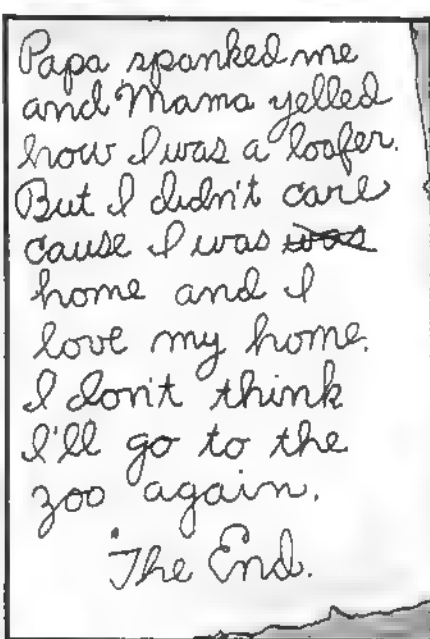 Papa spanked me
and Mama yelled
how I was a loafer.
But I didn't care
cause I was was
home and I
love my home.
I don't think
I'll go to the
zoo again.
The End.